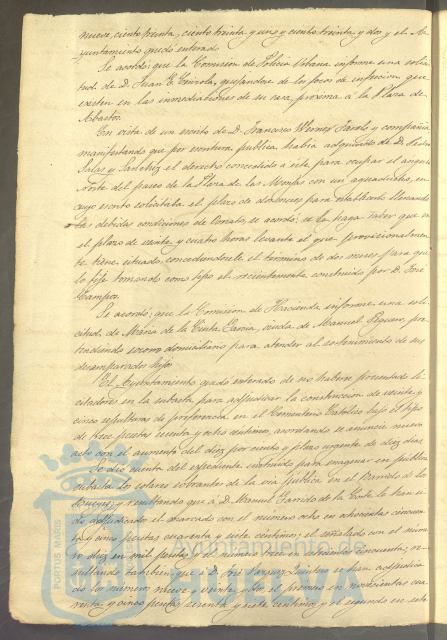 nueve, ciento treinta, ciento treinta y uno y ciento treinta y dos y el A-
yuntamiento quedó enterado.
Se acordó: que la Comision de Policia Urbana informe una solici-
tud de D. Juan quejandose de los focos de infeccion que
existen en las inmediaciones de su casa proxima á la Plaza de
Abastos.
En vista de un escrito de D. Francisco y compañia
manifestando que por escritura publica habia adquirido de D. Pedro
Salas y Sanchez el derecho concedido á este para ocupar el angulo
Norte del paseo de la Plaza de las Monjas con un aguaducho, en
cuyo escrito solicitaba el plazo de dos meses para establecerlo llenando
las debidas condiciones de Ornato, se acordó: se le haga saber que en
el plazo de veinte y cuatro horas levante el que provisionalmen-
te tiene situado concediendole el termino de dos meses para que
lo fije tomando como tipo el recientemente construido por D. José
Campos.
Se acordó: que la Comision de Hacienda informe una soli-
citud de Maria de la Cinta Garcia, viuda de Manuel pre-
tendiendo socorro domiciliario para atender al sostenimiento de sus
desamparados hijos.
El Ayuntamiento quedó enterado de no haberse presentado li-
citadores en la subasta para adjudicar la construccion de veinte y
cinco sepulturas de preferencia en el Cementerio Catolico bajo el tipo
de trece pesetas cuenta y ocho centimos, acordando se anuncie nuevo
acto con el aumento del diez por ciento y plazo urgente de diez dias.
Se dió cuenta del expediente instruido para enagenar en publica
subasta los solares sobrantes de la via publica en el Barrido de lo
y resultando que á D. Manuel Garrido de la Corte le han si-
do adjudicados el marcado con el numero ocho en ochocientas cincuen-
ta y una pesetas cuarenta y siete centimos; el señalado con el nume-
ro diez en mil pesetas y el numero trece en ochocientas cincuenta; re-
sultando tambien que á D. José Quintero se han adjudica-
do los numeros nueve y veinte, el primero en novecientas cua-
renta y cinco pesetas sesenta y siete centimos y el segundo en sete
PORTUS MARIS
Ayuntamiento de
HUELVA